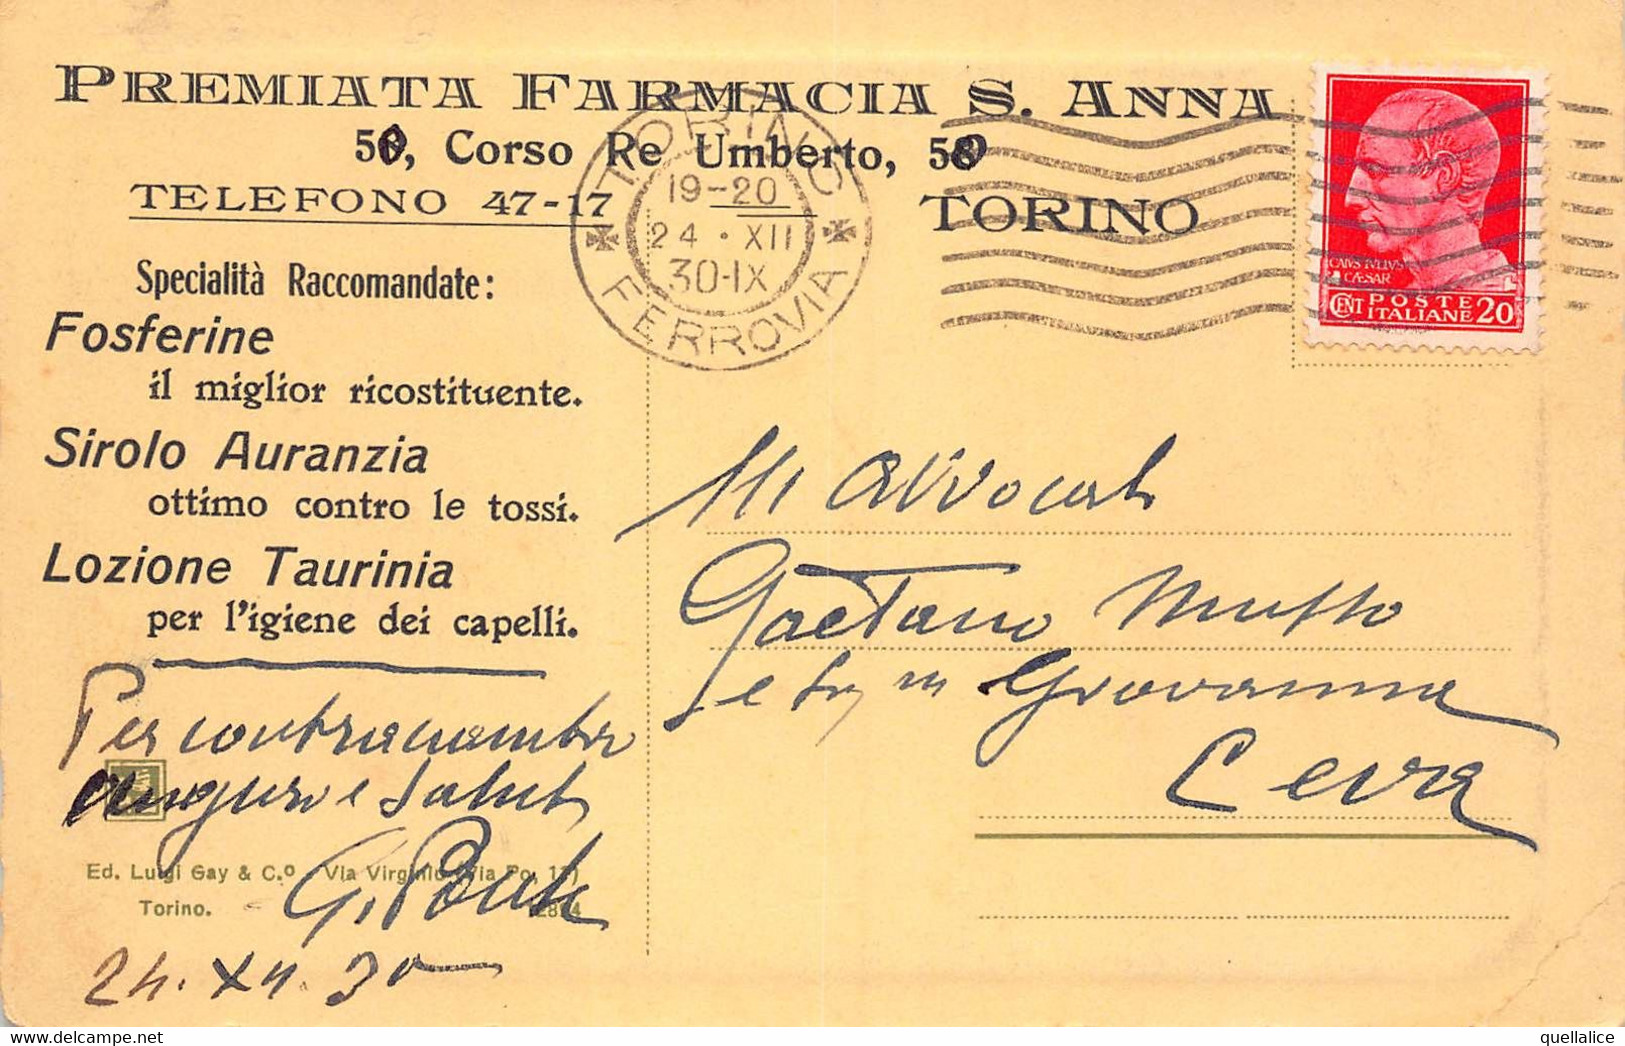 PREMIATA FARMACIA S. ANNA
50, Corso Re Umberto, 50
TELEFONO 47-17
TORINO
Specialità Raccomandate:
Fosferine
il miglior ricostituente.
Sirolo Auranzia
ottimo contro le tossi.
Lozione Taurinia
per l'igiene dei capelli.
TORINO
19-20
24 · XII
30-IX
FERROVIA
CAIVS IVLIVS
CÆSAR
POSTE
CENT ITALIANE 20
Avvocato
Gaetano Musso
e Giovanna
Ceva
Per contracambio
auguri e saluti
G.
24. XII. 30
Ed. Luigi Gay & C.º Via Virginio (Via Po, 17)
Torino.
quellalice